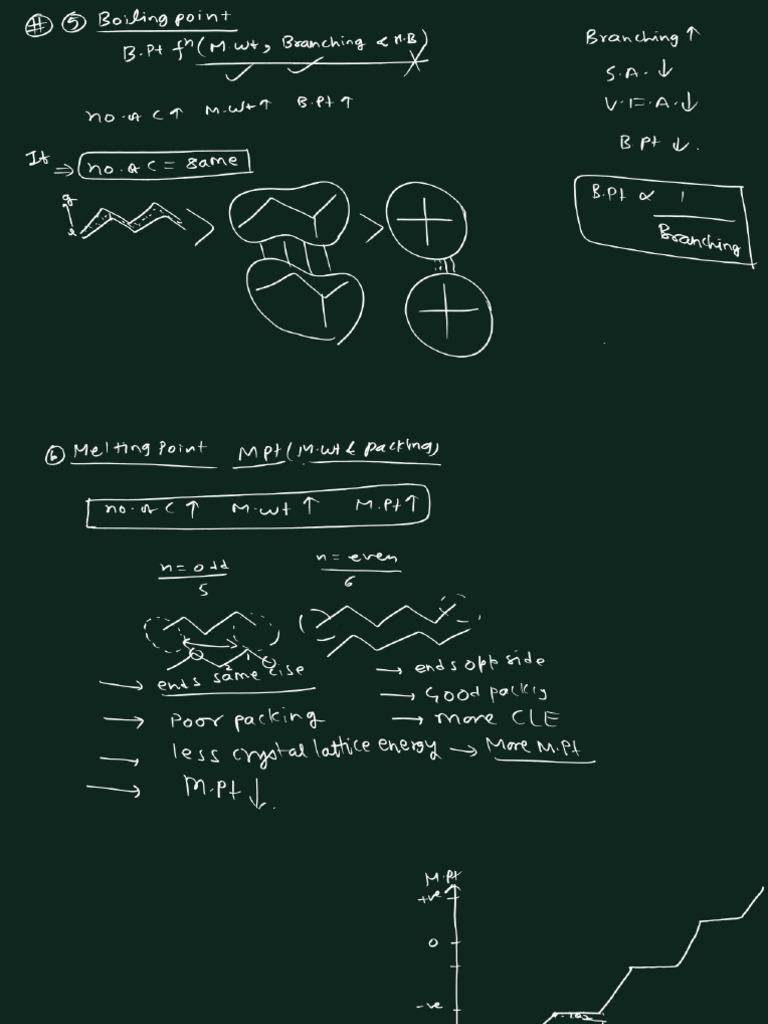 # ⑤ Boiling point
B.Pt fⁿ (M.wt, Branching & H.B)
no. of C ↑ M.wt ↑ B.Pt ↑
If ⇒ no. of C = same
> >
Branching ↑
S.A. ↓
V.F.A. ↓
B.Pt ↓.
B.Pt ∝ 1 / Branching
⑥ Melting Point M Pt (M.wt & packing)
no. of C ↑ M.wt ↑ M.Pt ↑
n = odd
5
n = even
6
→ ends same cise
→ Poor packing
→ less crystal lattice energy
→ M.Pt ↓.
→ ends opp side
→ Good packig
→ more CLE
→ More M.Pt
M.pt
+ve
0
-ve